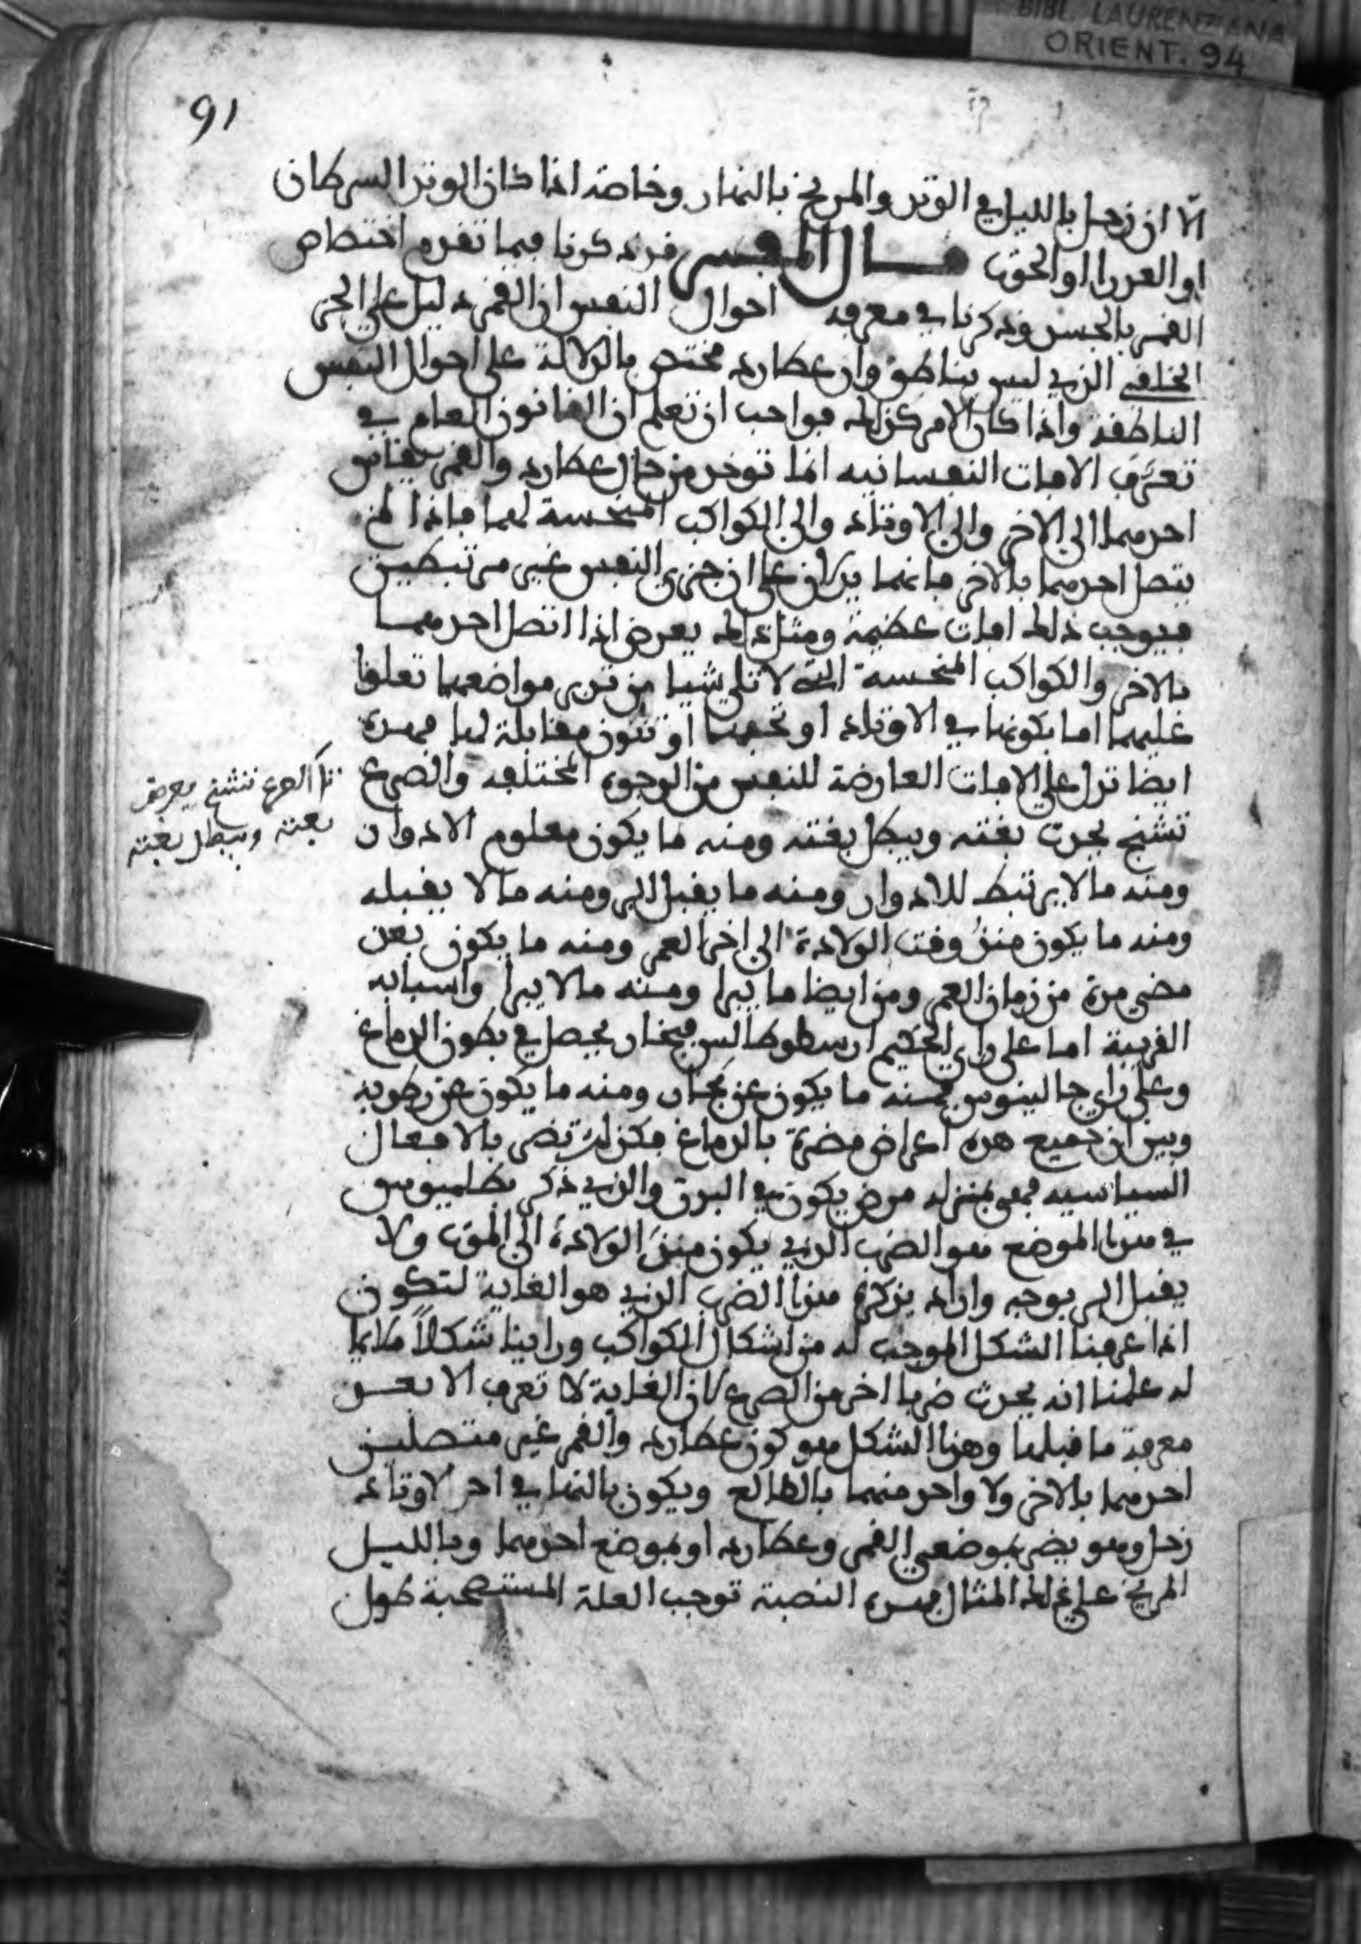 BIBL. LAURENZIANA
ORIENT. 94
91
الا ان زحل بالليل في الوتر والمريخ بالنهار وخاصة اذا كان الوتر السرطان
او العذرا او الحوت قال المفسر قد ذكرنا فيما تقدم اختصاص
القمر بالحس وذكرنا في معرفة احوال النفس ان القمر دليل على الجزء
الخلقي الذي ليس بناطق وان عطارد مختص بالدلالة على احوال النفس
الناطقة واذا كان الامر كذلك فواجب ان تعلم ان القانون العام في
تعرف الافات النفسانية انما توخذ من حال عطارد والقمر بقياس
احدهما الى الاخر والى الاوتاد والى الكواكب المنحسة لهما فاذا لم
يتصل احدهما بالاخر فانهما يدلان على ان جزءي النفس غير مرتبطين
فيوجب ذلك افات عظيمة ومثل ذلك يعرض اذا اتصل احدهما
بالاخر والكواكب المنحسة التي لا تلي شيا من تدبير مواضعهما تعلوا
عليهما اما بكونها في الاوتاد او تحيط او تكون مقابلة لها فهذه
ايضا تدل على الافات العارضة للنفس من الوجوه المختلفة والصرع
تشنج يحدث بغتة ويبطل بغتة ومنه ما يكون معلوم الادوار
ومنه ما لا يرتبط للادوار ومنه ما يقبل البر ومنه ما لا يقبله
ومنه ما يكون منذ وقت الولادة الى اخر العمر ومنه ما يكون بعد
مضي مدة من زمان العمر ومن ايضا ما يبرا ومنه ما لا يبرا واسبابه
القريبة اما على راي الحكيم ارسطوطالس فبخار يحصل في بطون الدماغ
وعلى راي جالينوس فمنه ما يكون عن بخار ومنه ما يكون عن رطوبة
وبين ان جميع هذه اعراض مضرة بالدماغ فكذلك تضر بالافعال
السياسية فهي بمنزلة مرض يكون في البدن والذي ذكر بطلميوس
في هذا الموضع هو الضرب الذي يكون منذ الولادة الى الموت ولا
يقبل البر بوجه واراد بذكره هذا الضرب الذي هو الغاية لتكون
اذا عرفنا الشكل الموجب له من اشكال الكواكب وراينا شكلاً ملايما
له علمنا انه يحدث ضربا اخر من الصرع لان الغاية لا تعرف الا بعد
معرفة ما قبلها وهذا الشكل هو كون عطارد والقمر غير متصلين
احدهما بالاخر ولا واحد منهما بالطالع ويكون بالنهار في احد الاوتاد
زحل وهو يضر بموضعي القمر وعطارد او بموضع احدهما وبالليل
المريخ على ذلك المثال فهذه النصبة توجب العلة المستصحبة طول
الصرع تشنج يعرض
بغتة ويبطل بغتة